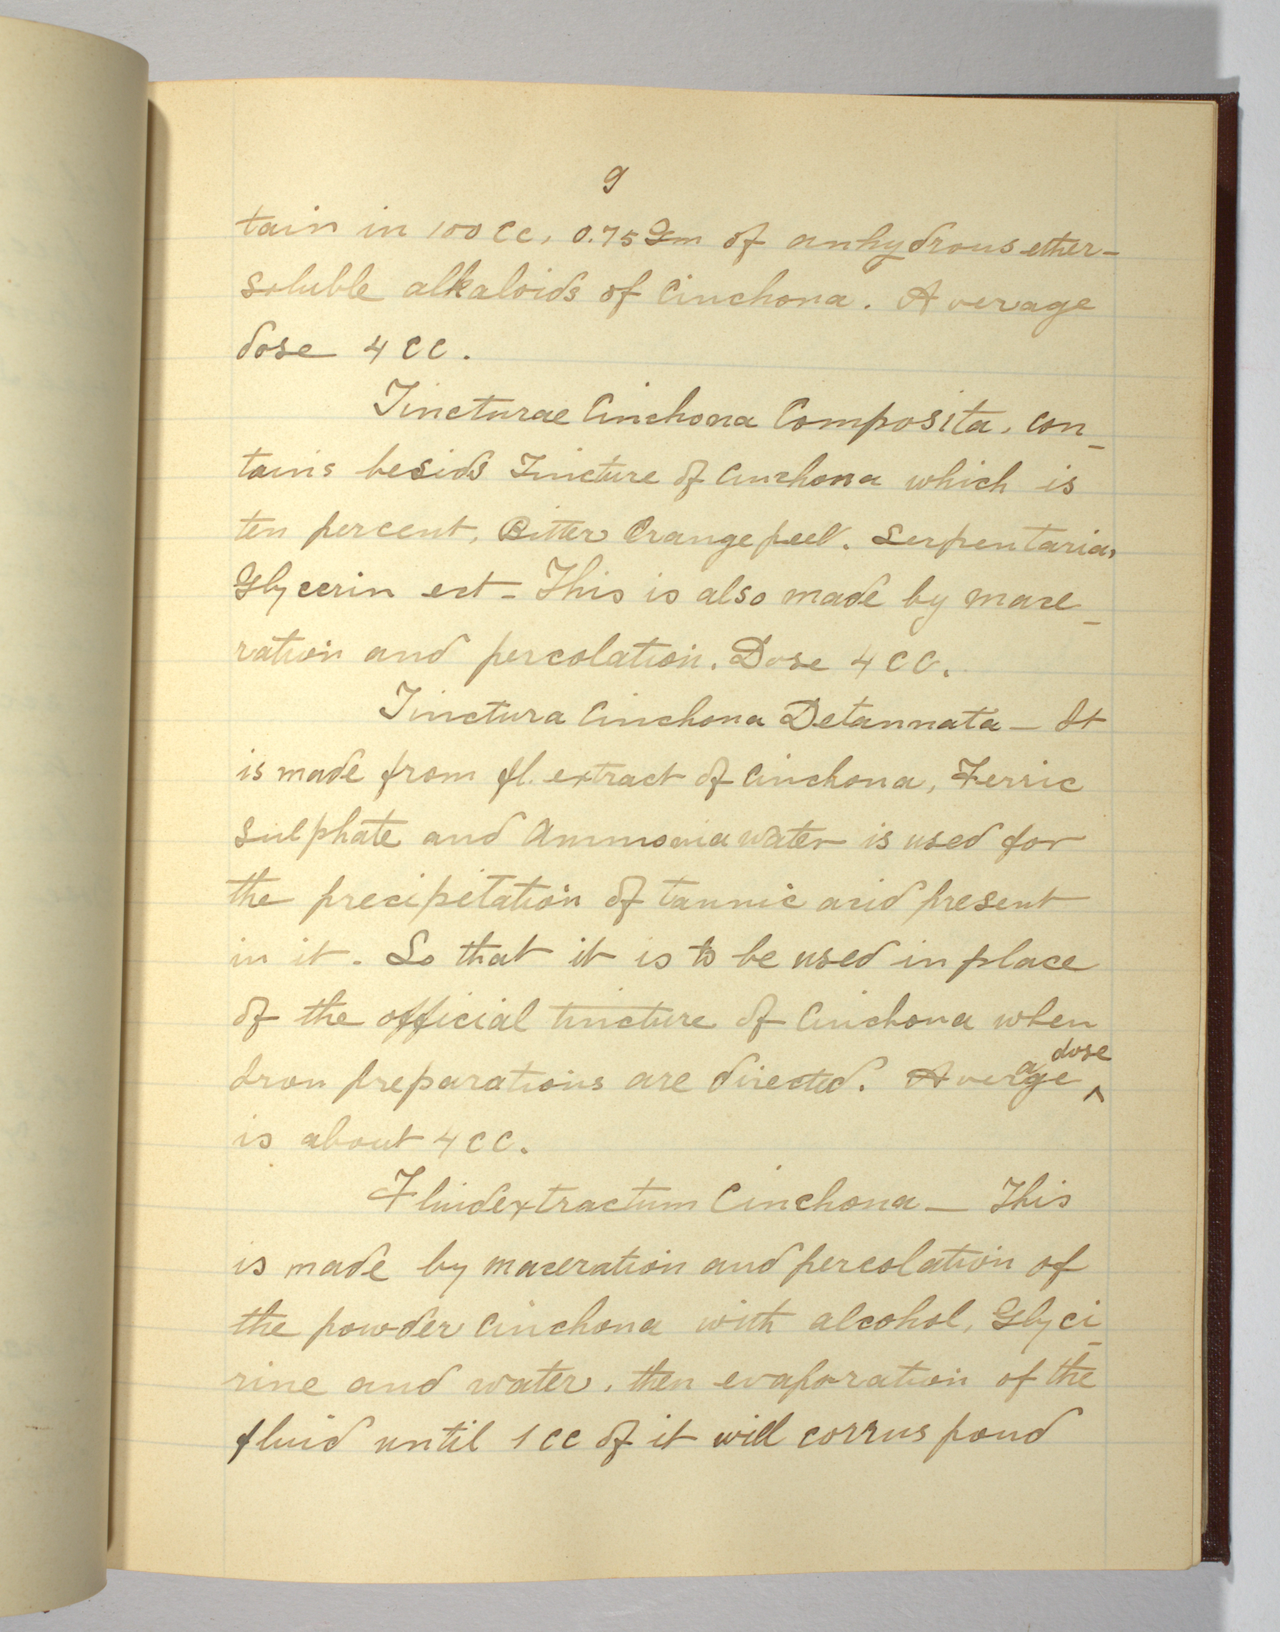 9
tain in 100 Cc, 0.75 Gm of anhydrous ether-
soluble alkaloids of Cinchona. Average
dose 4 CC.
Tincturae Cinchona Composita, con-
tains besids Tincture of Cinchona which is
ten percent, Bitter Orange peel. Serpentaria,
Glycerin ect - This is also made by mace-
ration and percolation. Dose 4 CC.
Tinctura Cinchona Detannata - It
is made from fl. extract of Cinchona, Ferric
Sulphate and Ammonia water is used for
the precipitation of tannic acid present
in it. So that it is to be used in place
of the official tincture of Cinchona when
Iron preparations are directed. Average dose
is about 4 CC.
Fluidextractum Cinchona - This
is made by maceration and percolation of
the powder Cinchona with alcohol, Glyci-
rine and water, then evaporation of the
fluid until 1 CC of it will corruspond